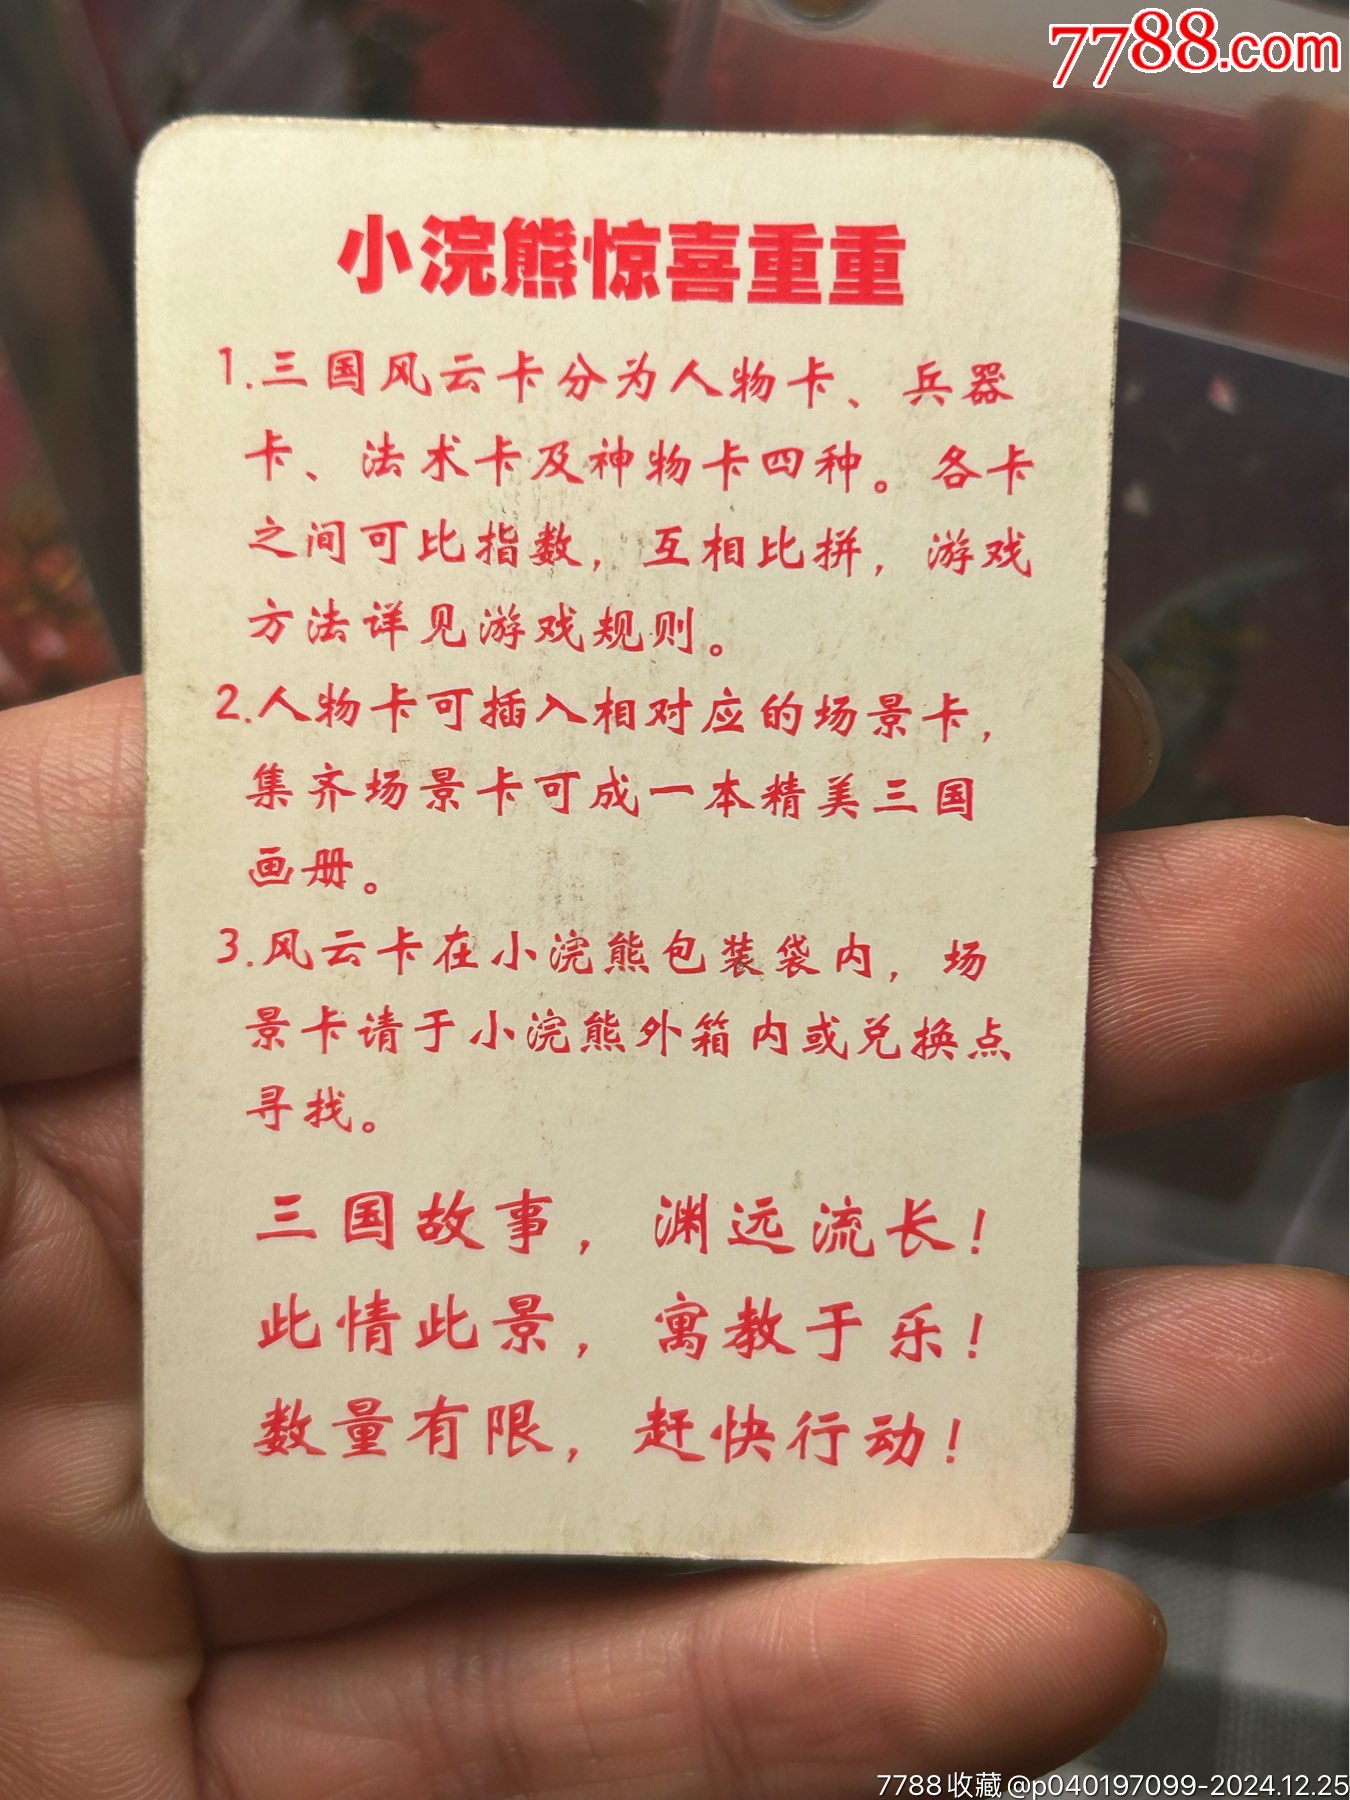 7788.com
小浣熊惊喜重重
1.三国风云卡分为人物卡、兵器
卡、法术卡及神物卡四种。各卡
之间可比指数，互相比拼，游戏
方法详见游戏规则。
2.人物卡可插入相对应的场景卡，
集齐场景卡可成一本精美三国
画册。
3.风云卡在小浣熊包装袋内，场
景卡请于小浣熊外箱内或兑换点
寻找。
三国故事，渊远流长！
此情此景，寓教于乐！
数量有限，赶快行动！
7788收藏@p040197099-2024.12.25